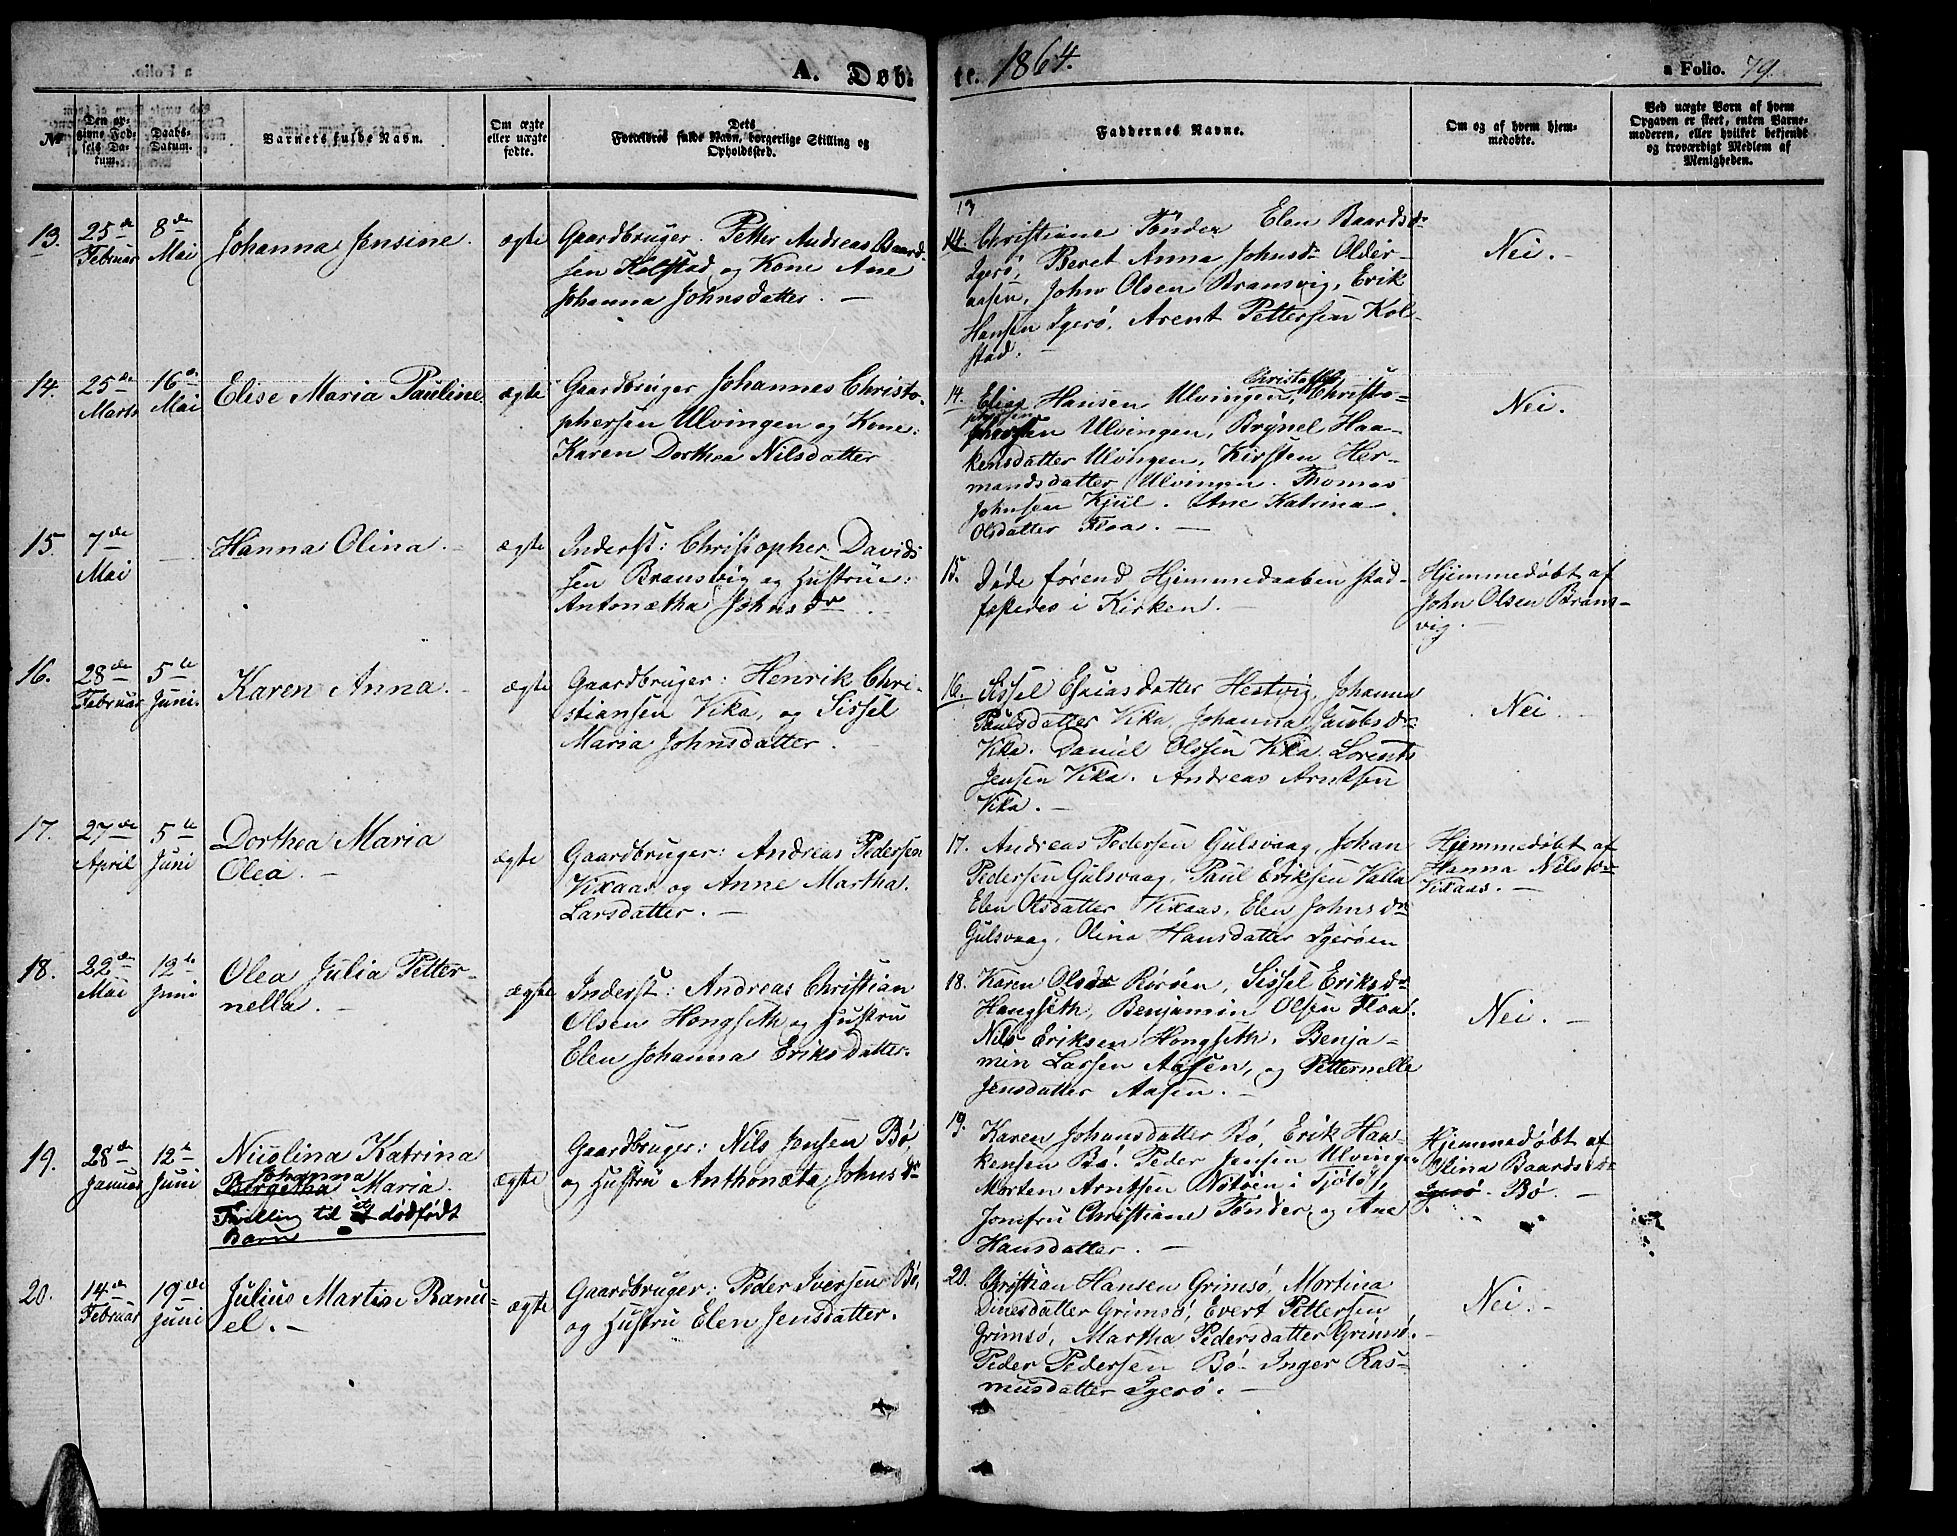 A. Døb-
te. 1864.
a Folio. 79.
No
Den angivne Fødsels Datum.
Daabs-Datum.
Barnets fulde Navn.
Om ægte eller uægte fødte.
Forældres fulde Navn, borgerlige Stilling og Opholdssted.
Faddernes Navne.
Om og af hvem hjemmedøbte.
Ved uægte Børn af hvem Opgaven er skeet, enten Barnemoderen, eller hvilket bekjendt og troværdigt Medlem af Menigheden.
13. 25de Februar 8de Mai Johanna Jensine. ægte
Gaardbruger. Petter Andreas Baard-
sen Kolstad og Kone Ane
Johanna Johnsdatter. —
13
14. Christiane Tønder Elen Baardsdr
Igerø, Beret Anna Johnsdr Older-
aasen, John Olsen Bransvig, Erik
Hansen Igerø, Arent Pettersen Kol-
stad. —
Nei. —
14. 25de Marts 16de Mai Elise Maria Pauline. ægte
Gaardbruger Johannes Christo-
phersen Ulvingen og Kone:
Karen Dorthea Nilsdatter
14. Elias Hansen Ulvingen, Christo-
phersen Ulvingen, Brynel Haa-
kensdatter Ulvingen, Kirsten Her-
mandsdatter Ulvingen. Thomas
Johnsen Kjul. Ane Katrina
Olsdatter Floa. —
Nei.
15. 7de Mai — Hanna Olina. — ægte
Inderst: Christopher Davids
sen Bransvig og Hustrue:
Antonætha Johnsdr
15. Døde førend Hjemmedaaben stad-
fæstedes i Kirken. —
Hjemmedøbt af
John Olsen Brans-
vig. —
16. 28de Februar 5te Juni. Karen Anna. — ægte
Gaardbruger: Henrik Chri-
stiansen Vika, og Sissel
Maria Johnsdatter. —
16. Sissel Esaiasdatter Hestvig, Johanna
Paulsdatter Vika, Johanna Jacobsdr
Vika. Daniel Olssen Vika. Lorents
Jensen Vika. Andreas Arntsen
Vika. —
Nei. —
17. 27de April 5te Juni Dorthea Maria
Olea. — ægte
Gaardbruger: Andreas Pedersen
Vixaas og Anne Martha
Larsdatter. —
17. Andreas Pedersen Gulsvaag, Johan
Pedersen Gulsvaag, Paul Eriksen Valla
Elen Olsdatter Vixaas, Elen Johnsdr
Gulsvaag, Olina Hansdatter Igerøen
Hjemmedøbt af
Hanna Nilsdr
Vixaas. —
18. 22de Mai 12te Juni Olea Julia Petter-
nella. — ægte
Inderst: Andreas Christian
Olsen Hongseth og Hustru
Elen Johanna Eriksdatter.
18. Karen Olsdr Rørøen, Sissel Eriksdr
Hangseth, Benjamin Olsen Floa.
Nils Eriksen Hongseth, Benja-
min Larsen Aasen, og Petternelle
Jensdatter Aasen. —
Nei. —
19. 28de Januar 12te Juni Nicolina Katrina
Johanna
Bergetha Maria.
Tvilling til et dødfødt
Barn
ægte
Gaardbruger: Nils Jensen Bø,
og Hustru Anthonæta Johnsdr
19. Karen Johansdatter Bø, Erik Haa-
kensen Bø. Peder Jensen Ulvingen
Morten Arntsen Nötøen i Tjøtø,
Jomfru Christiane Tønder, og Ane
Hansdatter. —
Hjemmedøbt af
Olina Baardsdr
Igerø. Bø. —
20. 14de Februar 19de Juni Julius Martin Ranu-
el. — ægte
Gaardbruger: Peder Iversen Bø,
og Hustru Elen Jensdatter.
20. Christian Hansen Grimsø, Mortina
Dinesdatter Grimsø, Evert Pettersen
Grimsø, Martha Pedersdatter Grimsø.
Peder Pedersen Bø. Inger Ras-
musdatter Igerø. —
Nei. —